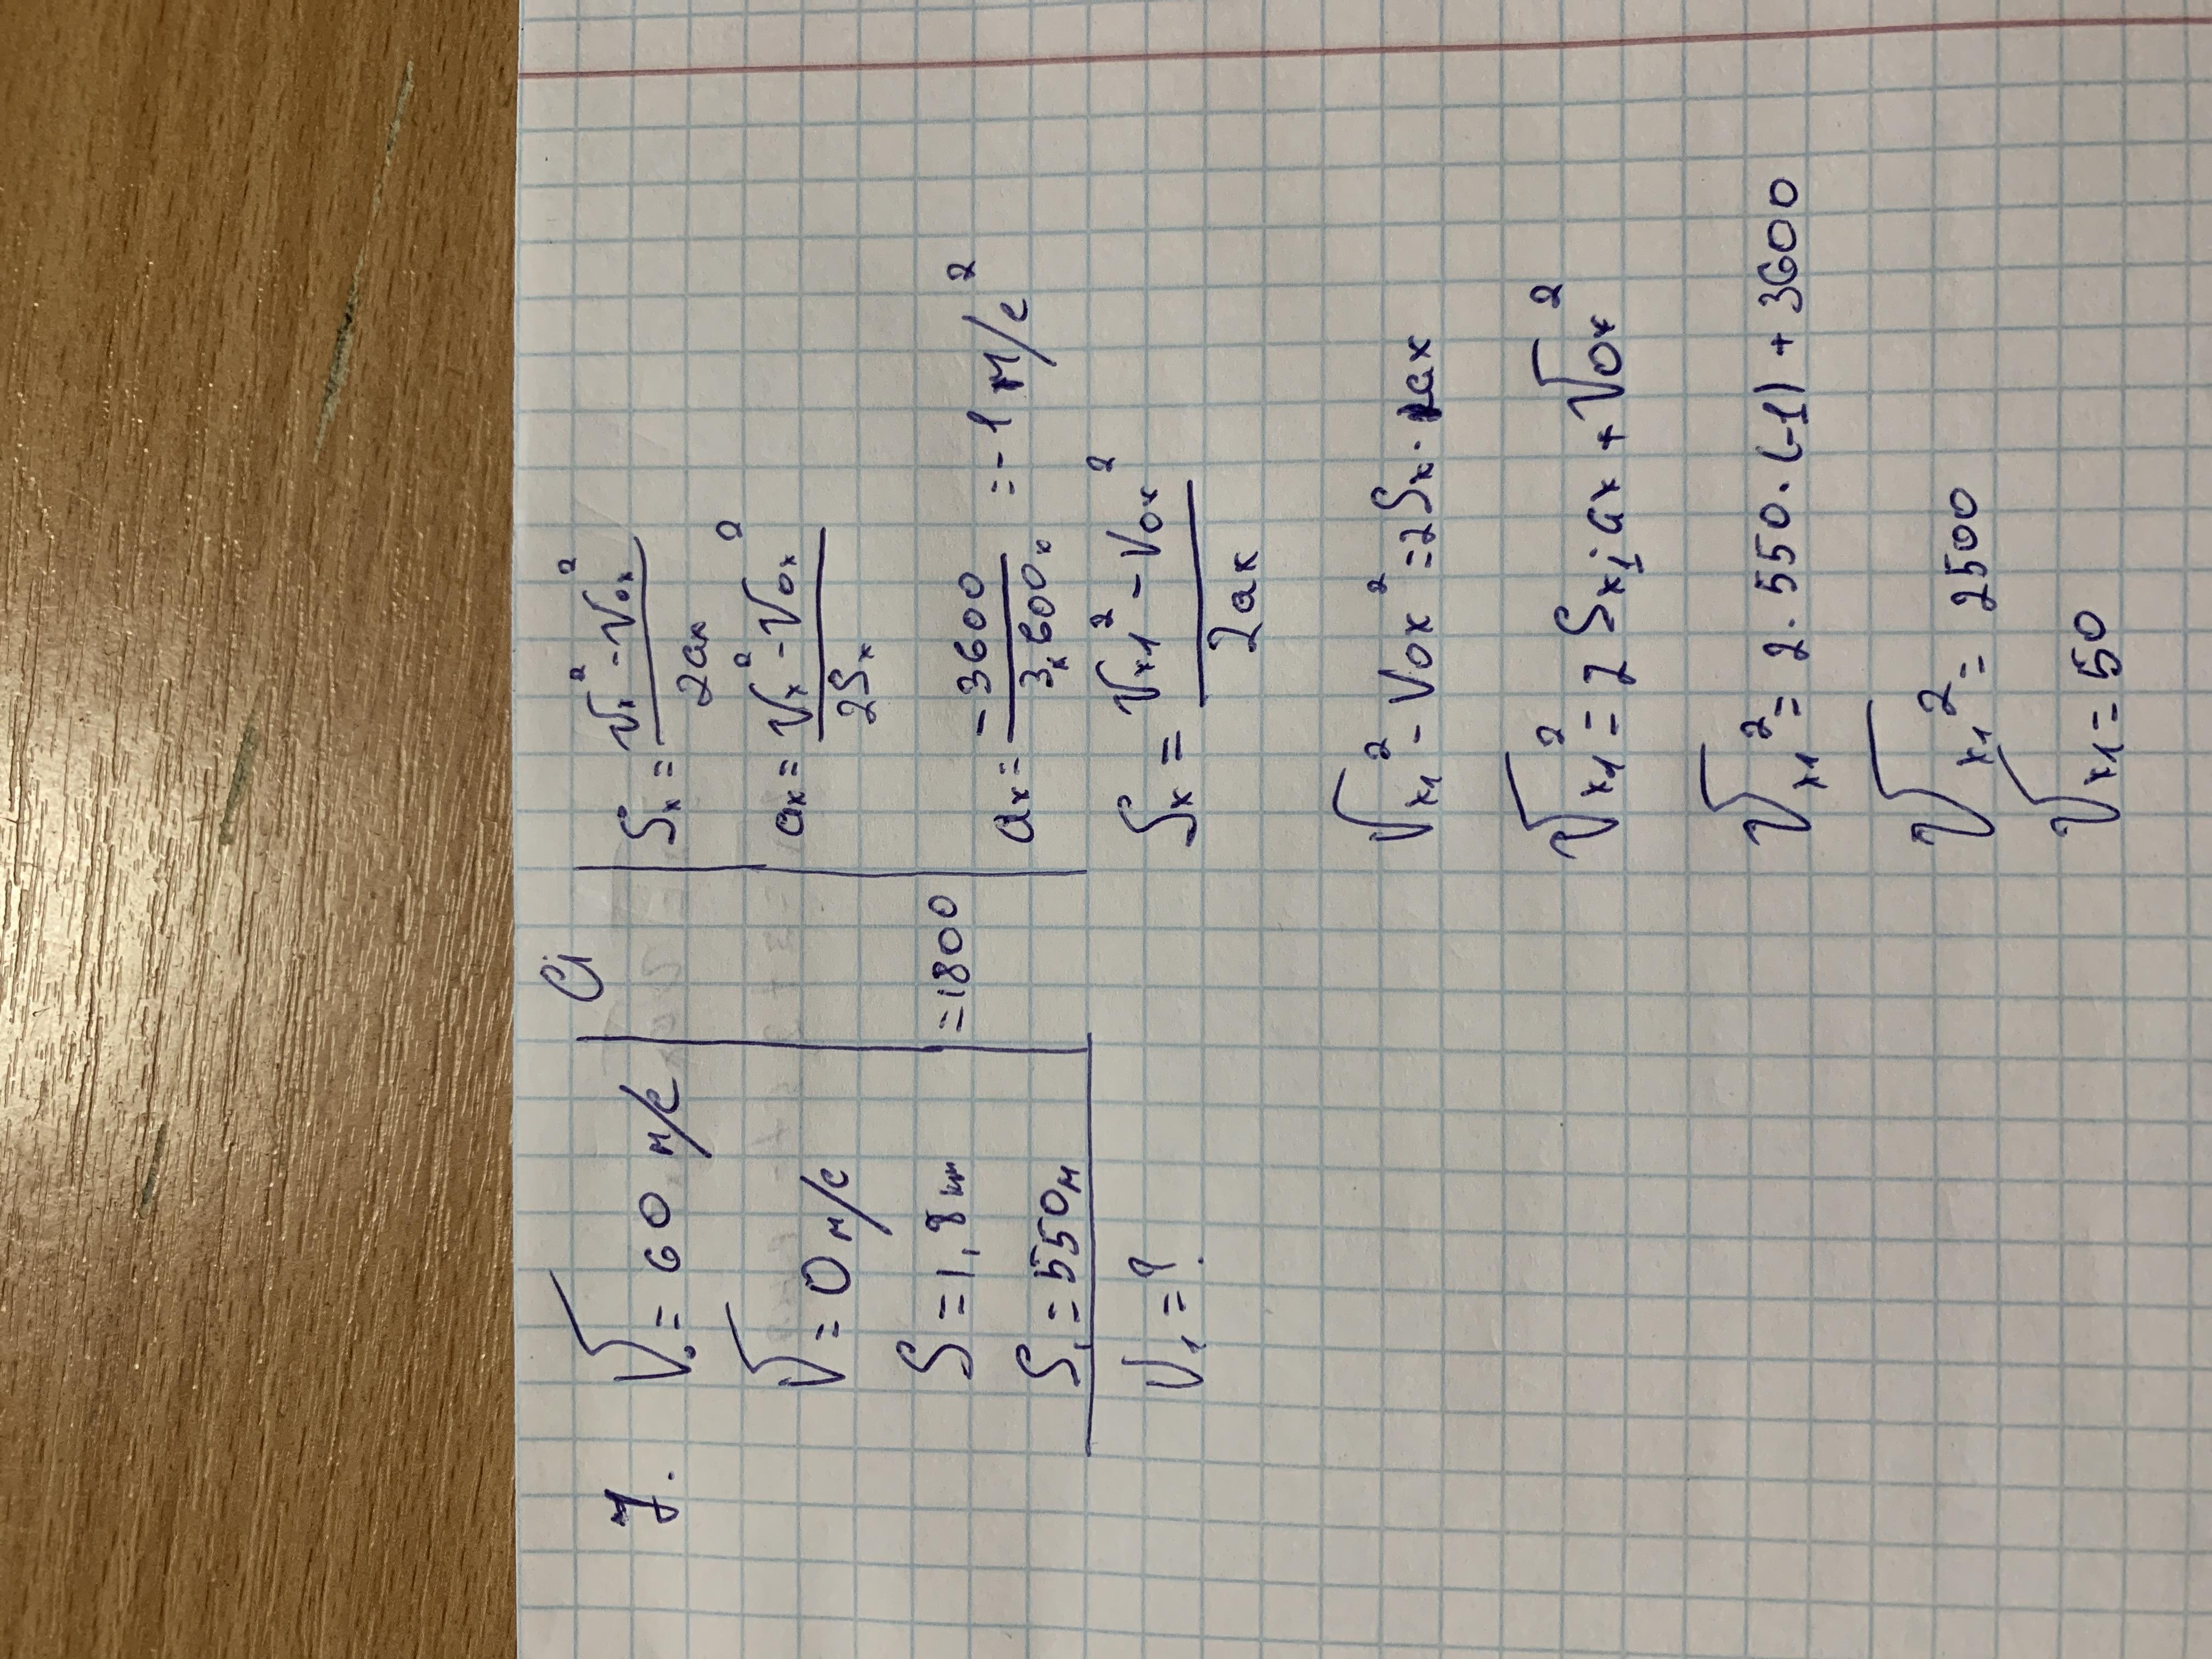 7.
V₀ = 60 м/с
V = 0 м/с
S = 1,8 км = 1800
S₁ = 550 м
V₁ = ?
Си
Sₓ = (Vₓ² - V₀ₓ²) / 2aₓ
aₓ = (Vₓ² - V₀ₓ²) / 2Sₓ
aₓ = -3600 / 3600 = -1 м/с²
Sₓ = (Vₓ₁² - V₀ₓ²) / 2aₓ
Vₓ₁² - V₀ₓ² = 2Sₓ · aₓ
Vₓ₁² = 2Sₓ₁aₓ + V₀ₓ²
Vₓ₁² = 2 · 550 · (-1) + 3600
Vₓ₁² = 2500
Vₓ₁ = 50